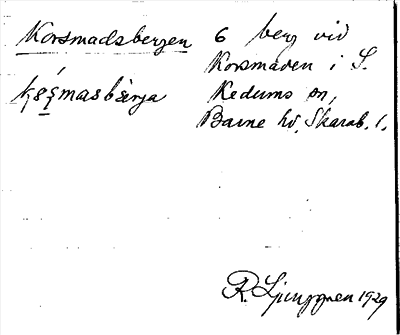 Korsmadsbergen 6 berg vid
Korsmaden i S.
Kedums sn,
Barne hd, Skarab. l.
R. Ljunggren 1929